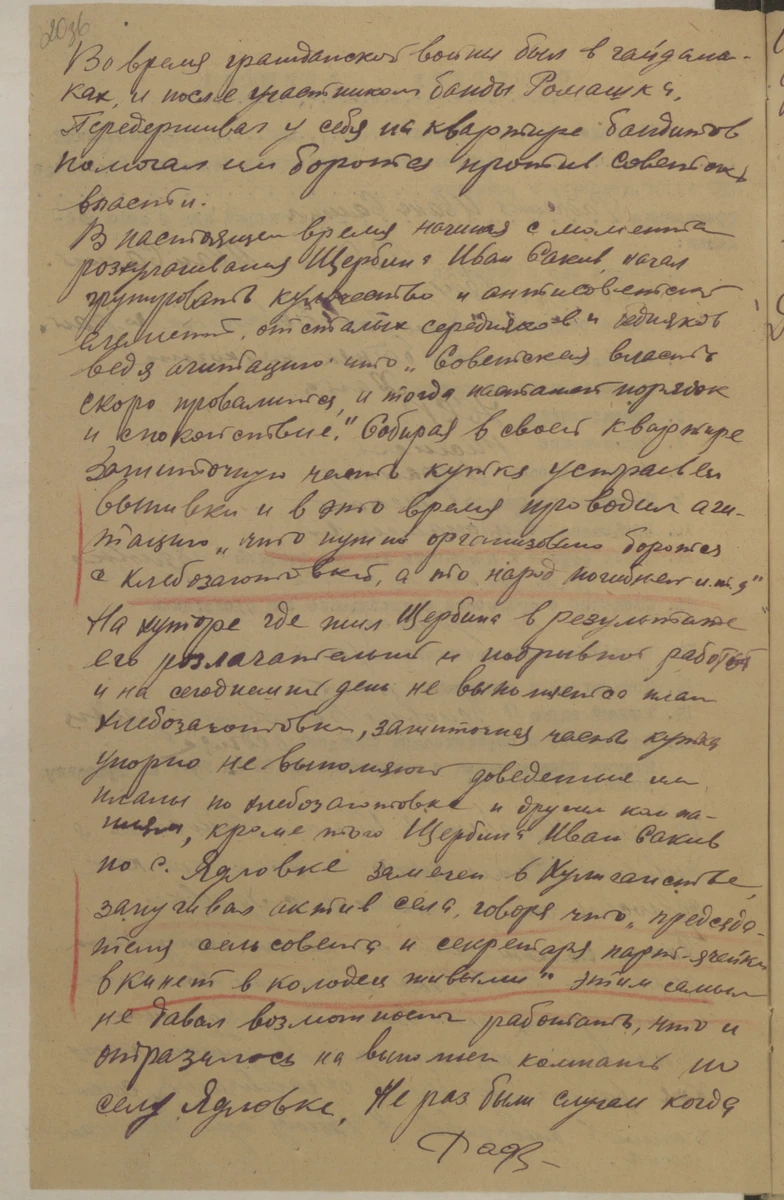 Во время гражданской войны был в гайдама-
ках, и после участником банды Ромашка,
Передерживал у себя на квартире бандитов
помогал им боротся против советск.
власти.
В настоящем время начиная с момента
розкулачивания Щербина Иван Саков, начал
групировать кулачество и антисоветский
елемент, отсталых середняков и бедняков
ведя агитацию что „Советская власть
скоро провалится, и тогда настанет порядок
и спокойствие." Собирая в своей квартире
зажиточную часть кутка устраивал
выпивки и в это время проводил аги-
тацию „что нужно организовано боротся
с хлебозаготовкой, а то народ погибнет и.т.д"
На хуторе где жил Щербина в результате
его розлагательной и подрывной работой
и на сегодняшний день не выполняется план
хлебозаготовки, зажиточная часть кутка
упорно не выполняют доведенные им
планы по хлебозаготовке и другим компа-
ниям, кроме того Щербина Иван Саков
по с. Ядловке замечен в хулиганстве,
запугивал актив села, говоря что „председа-
теля сельсовета и секретаря парт-ячейки
вкинет в колодец живыми" этим самым
не давал возможности работать, что и
отразилось на выполнен компаний по
селу Ядловке, Не раз были случаи когда